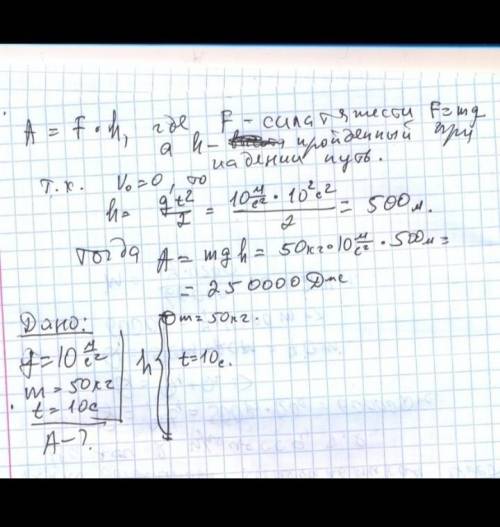 A = F · h, где F - сила тяжести F = mg
а h - пройденный при
падении путь.
т.к. V₀ = 0, то
h = gt²/2 = 10 м/с² · 10² с²/2 = 500 м.
тогда A = mgh = 50кг · 10 м/с² · 500м =
= 250000 Дж
Дано:
g = 10 м/с²
m = 50кг
t = 10с
A - ?
h
m = 50кг.
t = 10с.